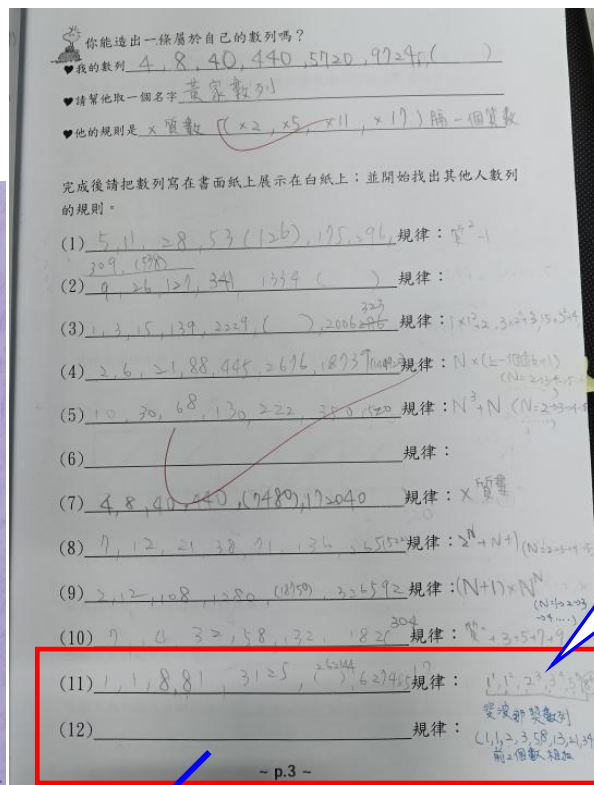 你能造出一條屬於自己的數列嗎？
♥我的數列 4, 8, 40, 440, 5720, 97240, ( )
♥請幫他取一個名字 黃家數列
♥他的規則是 × 質數 (×2, ×5, ×11, ×17) 隔一個質數
完成後請把數列寫在書面紙上展示在白紙上；並開始找出其他人數列
的規則。
(1) 5, 11, 28, 53 (126), 175, 296, 規律：質²-1
309, (538)
(2) 9, 26, 127, 341 1334 ( ) 規律：
(3) 1, 3, 15, 139, 2229, ( ), 2006 323 規律：
(4) 2, 6, 21, 88, 445, 2676, 18739 規律：N×(上一個數+1)
(5) 10, 30, 68, 130, 222, 350, 520 規律：N³+N (N=2→3→4→5
(6) 規律：
(7) 4, 8, 40, 440, (7480), 172040 規律：× 質數
(8) 7, 12, 21, 38, 71, 136, 規律：2^N+N+1 (N=2→3→4→5
(9) 2, 12, 108, 1280, (18750), 326592 規律：(N+1)×N^N
(N=1→2→3
→4.....)
(10) 7, 32, 58, 132, 182 304 規律：質²+3+5+7+9
(11) 1, 1, 8, 81, 3125, (262144), 規律：1¹, 1², 2³, 3⁴, 5⁵
費波那契數列
(1,1,2,3,5,8,13,21,34
前2個數相加
(12) 規律：
~ p.3 ~